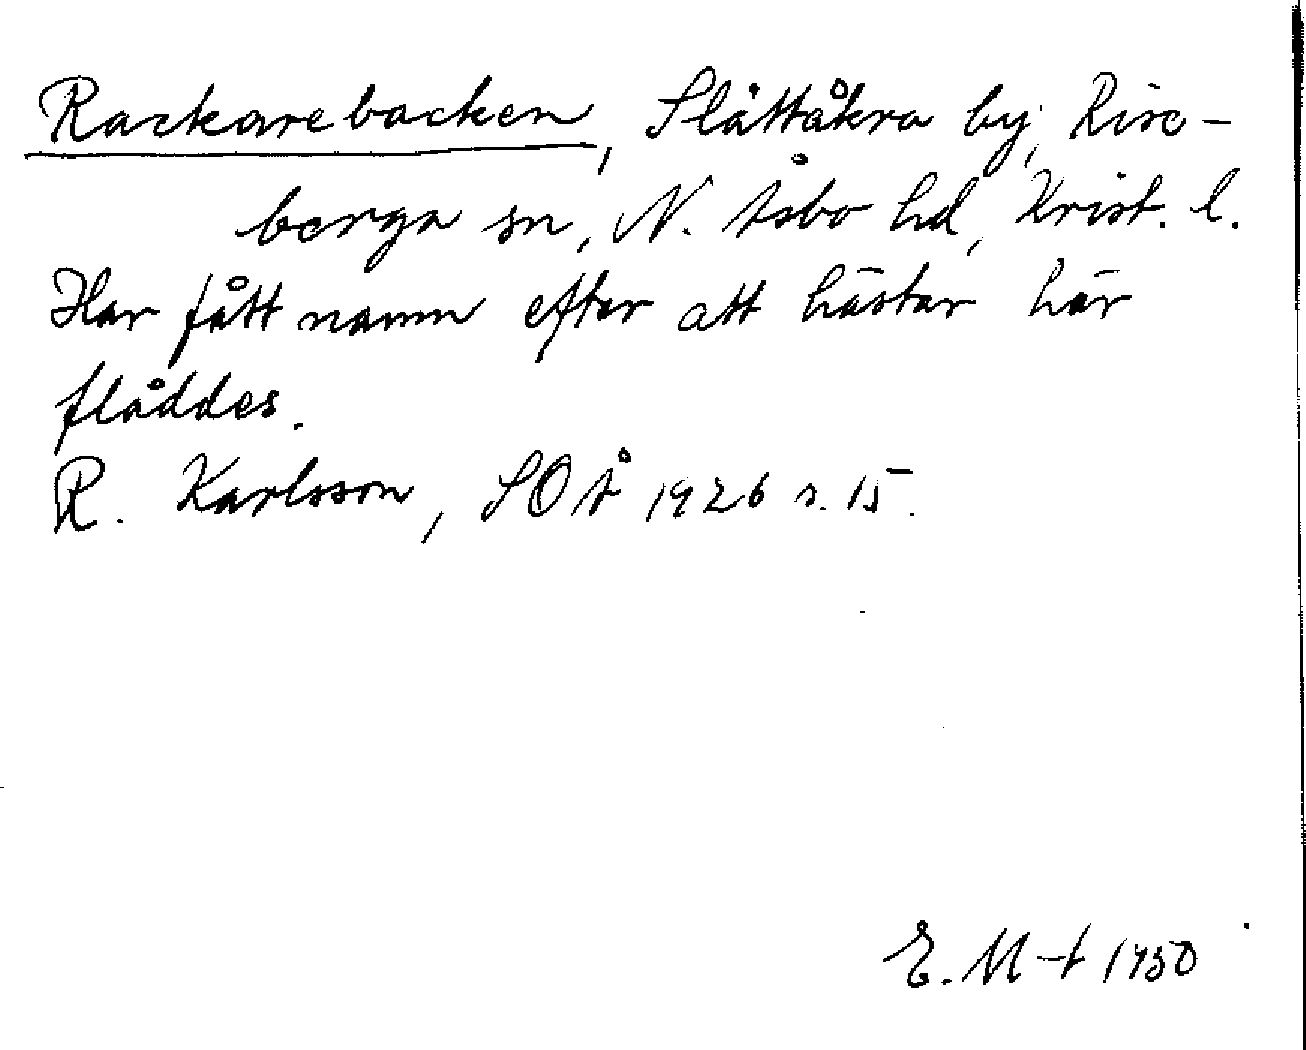 Rackarebacken, Slättåkra by, Rise-
berga sn, N. Åsbo hd, Krist. l.
Har fått namn efter att hästar här
flåddes.
R. Karlsson, SOÅ 1926 s. 15.
E. M-t 1950